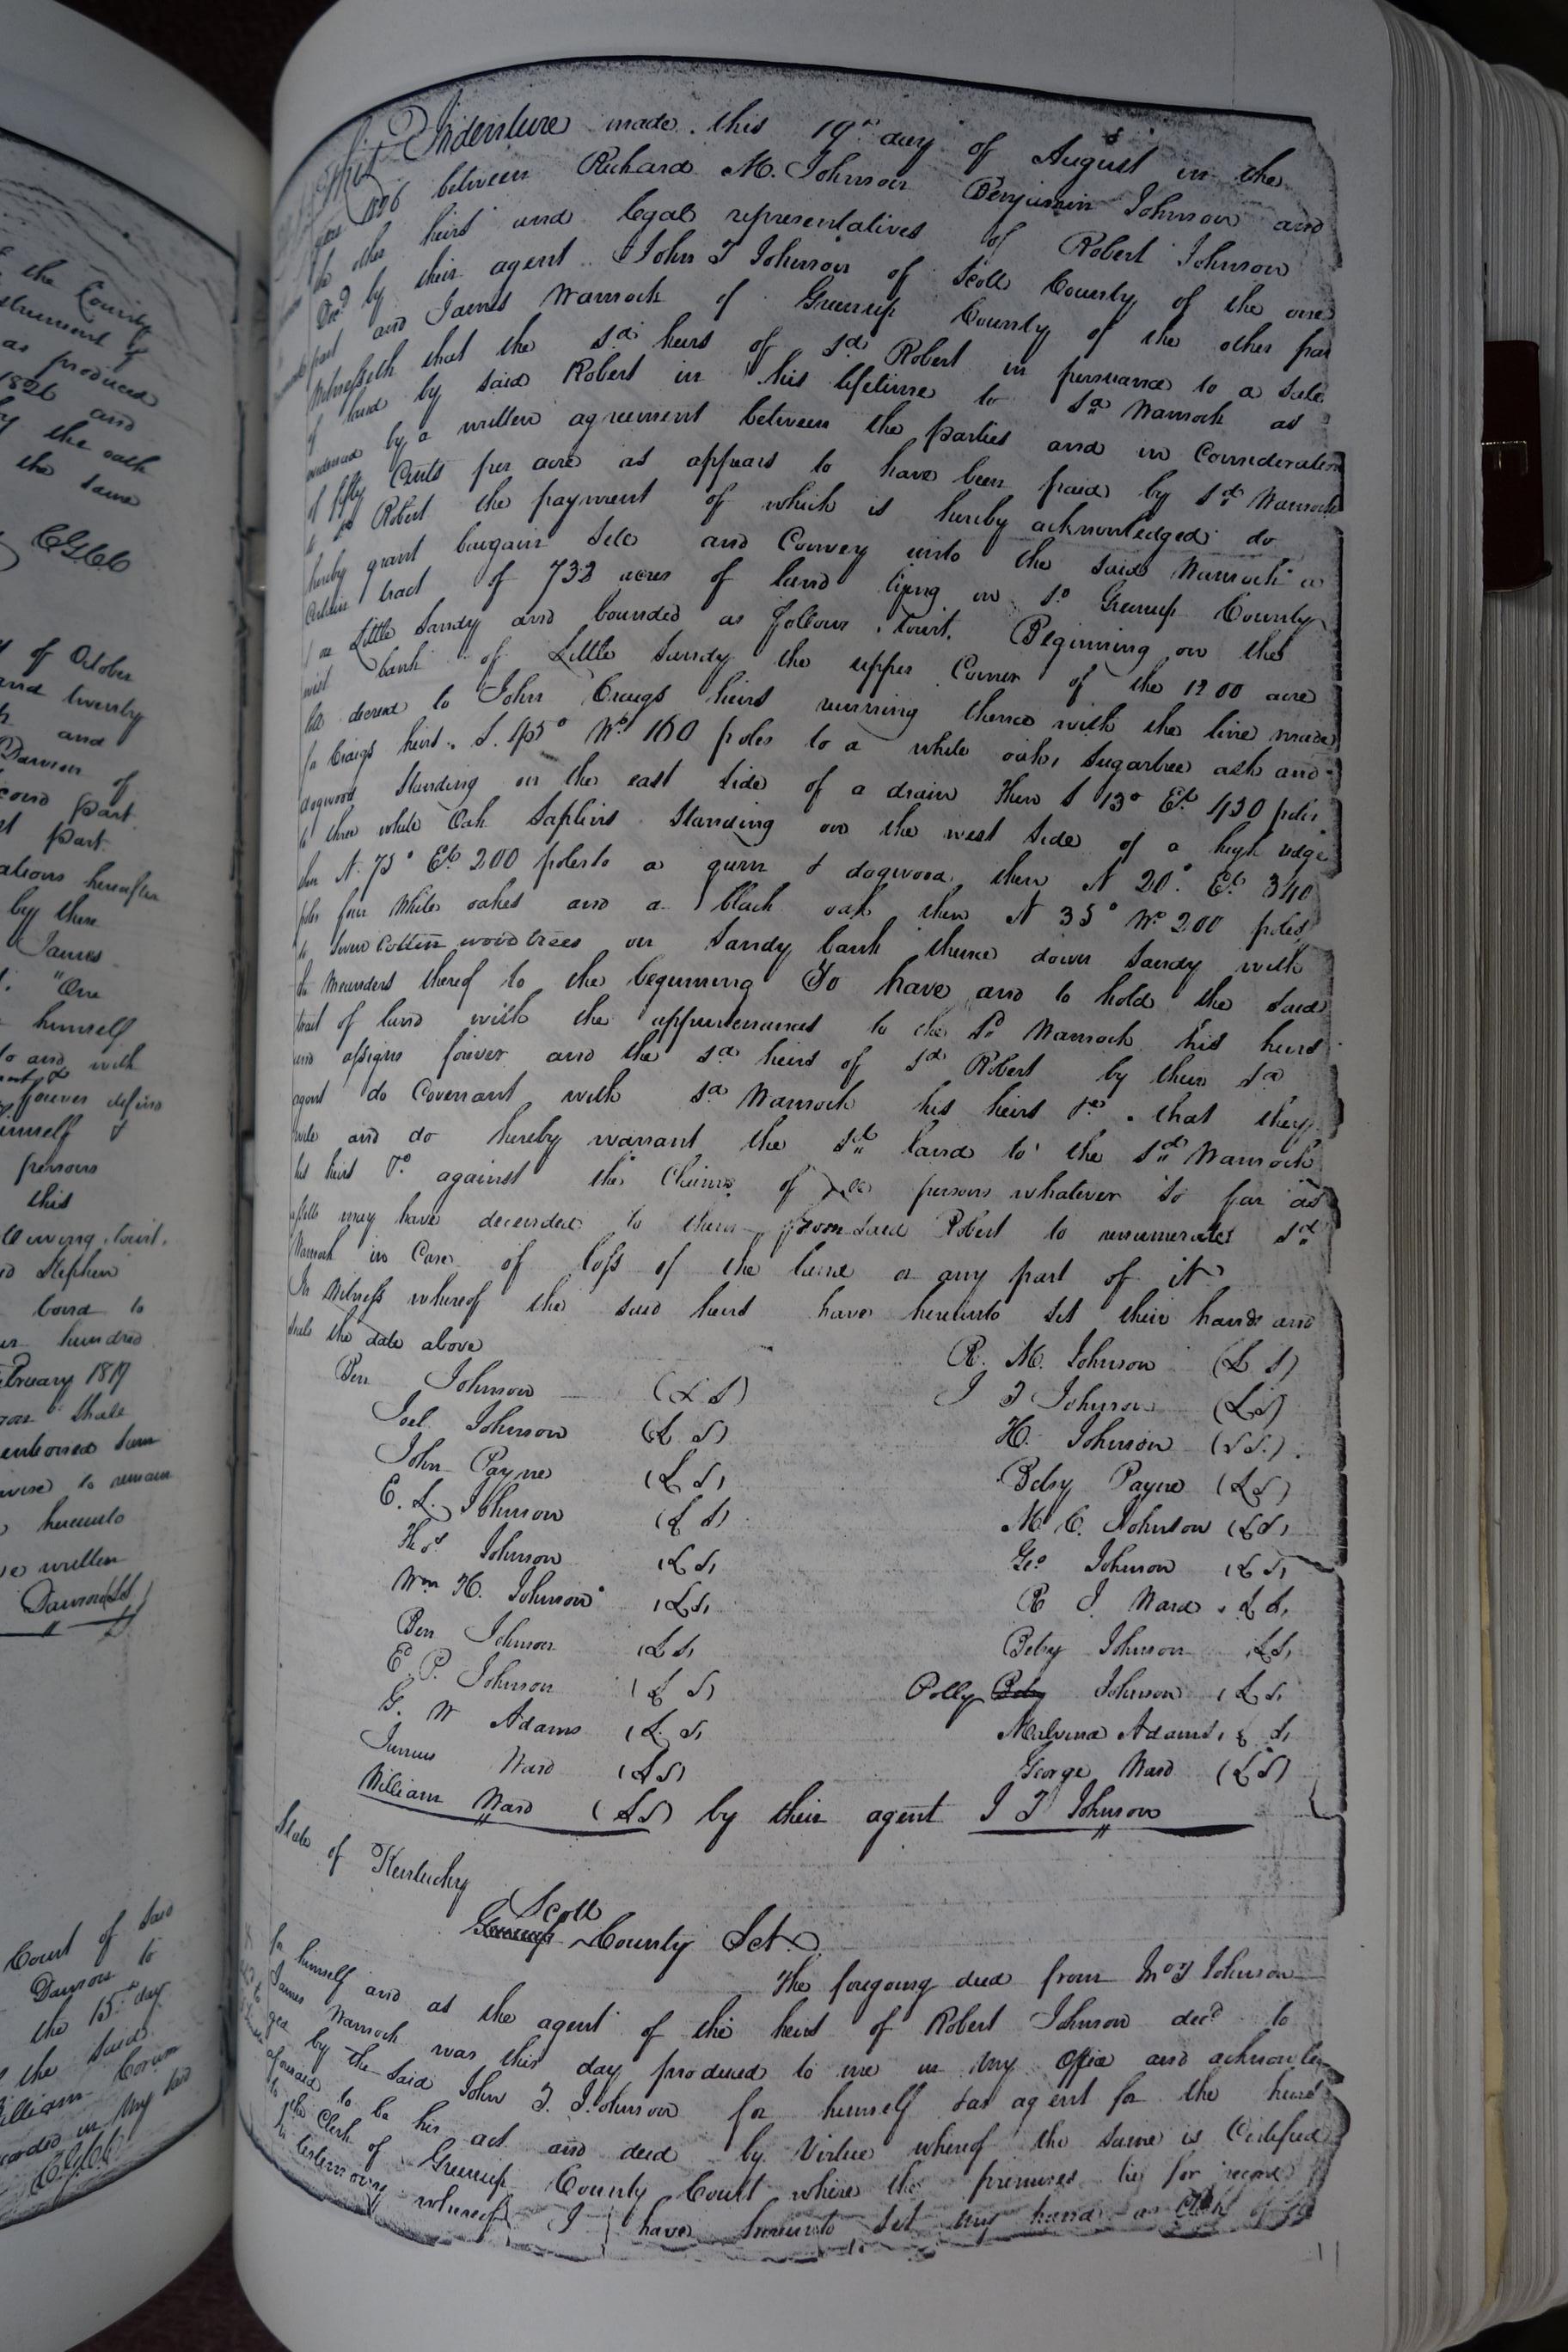 the County
strument of
as produced
1826 and
by the oath
the same
CGCC
of October
and twenty
and
Dawson of
cond part
part
ations hereafter
by these
James
"One
himself
to and with
forever defend
himself &
persons
this
llowing, towit,
Stephen
bond to
hundred
February 1819
shall
entioned sum
to remain
hereunto
written
Dawson (LS)
Court of said
Dawson to
the 15th day
the said
William
in my
CGCC
This Indenture made this 19th day of August in the
year 1826 between Richard M. Johnson Benjamin Johnson and
the other heirs and legal representatives of Robert Johnson
Decd by their agent John T Johnson of Scott County of the one
part and James Warnock of Greenup County of the other part
Witnesseth that the sd heirs of sd Robert in persuance to a sale
of land by said Robert in his lifetime to sd Warnock as
evidenced by a written agreement between the parties and in Consideration
of fifty Cents per acre as appears to have been paid by sd Warnock
to sd Robert the payment of which is hereby acknowledged do
hereby grant bargain Sell and Convey unto the said Warnock a
Certain tract of 732 acres of land lying in sd Greenup County
on Little Sandy and bounded as follows, towit. Beginning on the
west bank of Little Sandy the upper Corner of the 1200 acre
decreed to John Craigs heirs running thence with the line made
for Craigs heirs. S. 45° Wt 160 poles to a white oak, Sugartree ash and
dogwood Standing on the east side of a drain then S 13° Et 430 poles
to three white Oak Saplins Standing on the west side of a high ridge
then N. 75° Et 200 poles to a gum & dogwood, then N 20° Et 340
poles four White oakes and a black oak then N 35° Wt 200 poles
to Seven Cotten wood trees on Sandy bank thence down Sandy with
the Meanders thereof to the beginning To have and to hold the Said
tract of land with the appurtenances to the Sd Warnock his heirs
and assigns forever and the sd heirs of sd Robert by their sd
agent do Covenant with sd Warnock his heirs &c. that they
will and do hereby warrant the sd land to the sd Warnock
his heirs &c against the Claims of all persons whatever so far as
assetts may have decended to them from said Robert to renumerate sd
Warnock in Case of loss of the land or any part of it
In Witness whereof the said heirs have hereunto set their hands and
seals the date above
R. M. Johnson (L S)
Ben Johnson (L S)
J T Johnson (LS)
Joel Johnson (L S)
H. Johnson (LS)
John Payne (L S)
Betsy Payne (LS)
E. L. Johnson (L S)
M C. Johnson (LS)
Thos Johnson (LS)
Geo Johnson (LS)
Wm H. Johnson (LS)
R J. Ward (LS)
Ben Johnson (LS)
Betsy Johnson (LS)
E. P. Johnson (L S)
Polly Betsy Johnson (L S)
G. W Adams (L. S)
Malvina Adams (L S)
Junius Ward (LS)
George Ward (LS)
William Ward (LS) by their agent J T Johnson
State of Kentucky
Scott
Greenup County Sct.
The foregoing deed from Jno T Johnson
for himself and as the agent of the heirs of Robert Johnson decd to
James Warnock was this day produced to me in my Office and acknowle
ged by the said John T. Johnson for himself & as agent for the heirs
aforesaid to be his act and deed by Virtue whereof the same is Certified
to the Clerk of Greenup County Court where the premises lie for record
In testimony whereof I have hereunto set my hand as Clerk of